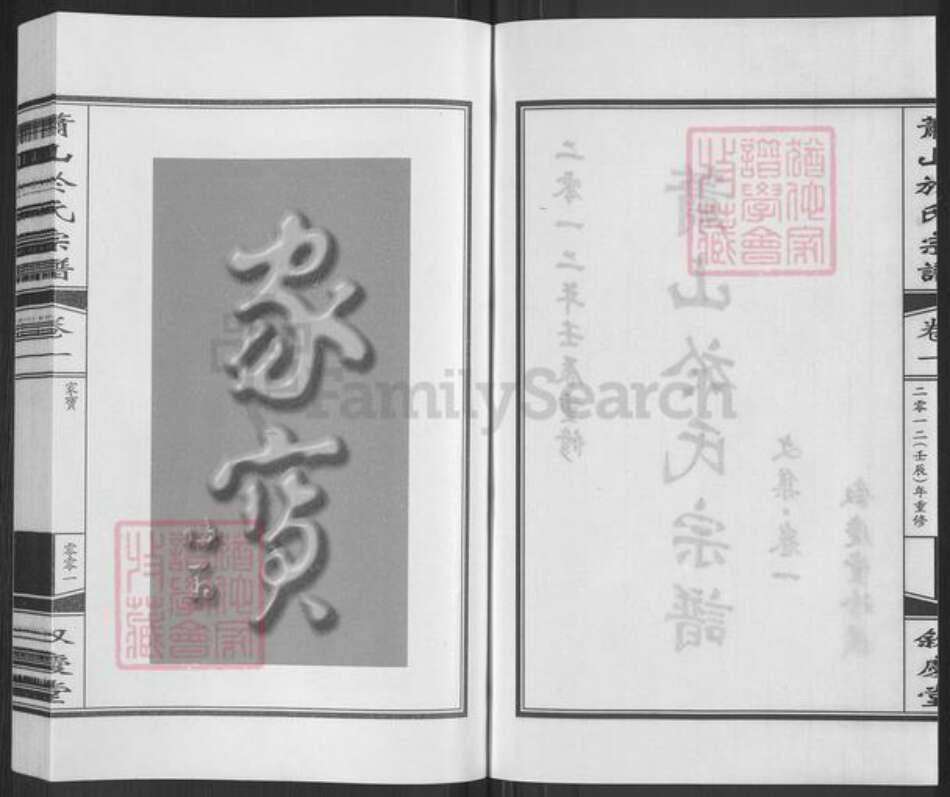 蕭山於氏宗譜
卷一
二零一二(壬辰)年重修
敘慶堂
猶他家譜學會收藏
蕭山於氏宗譜
文集·卷一
二零一二年壬辰重修
FamilySearch
家寶
猶他家譜學會收藏
蕭山於氏宗譜
卷一
家寶
零零一
敘慶堂